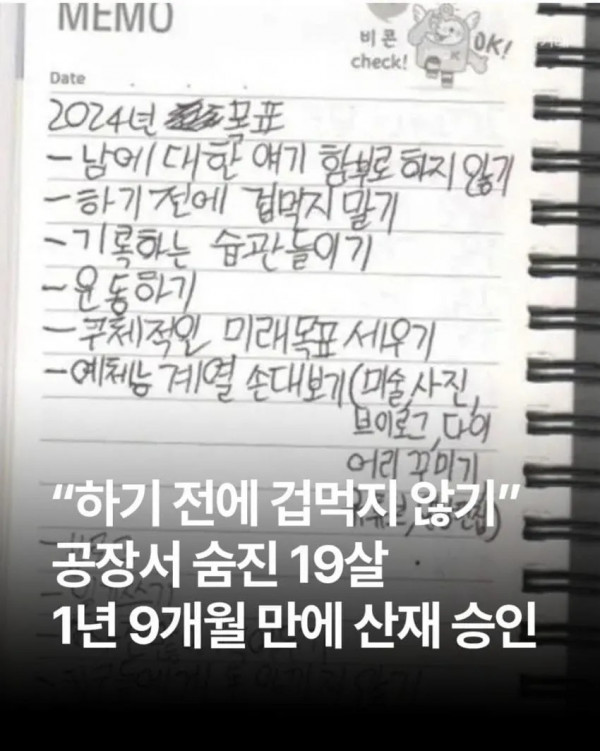 MEMO
비 콘
check!
OK!
Date
2024년 목표
- 남에 대한 얘기 함부로 하지 않기
- 하기 전에 겁먹지 말기
- 기록하는 습관들이기
- 운동하기
- 구체적인 미래목표 세우기
- 예체능 계열 손대보기(미술,사진,
브이로그,다이
어리 꾸미기
“하기 전에 겁먹지 않기”
공장서 숨진 19살
1년 9개월 만에 산재 승인